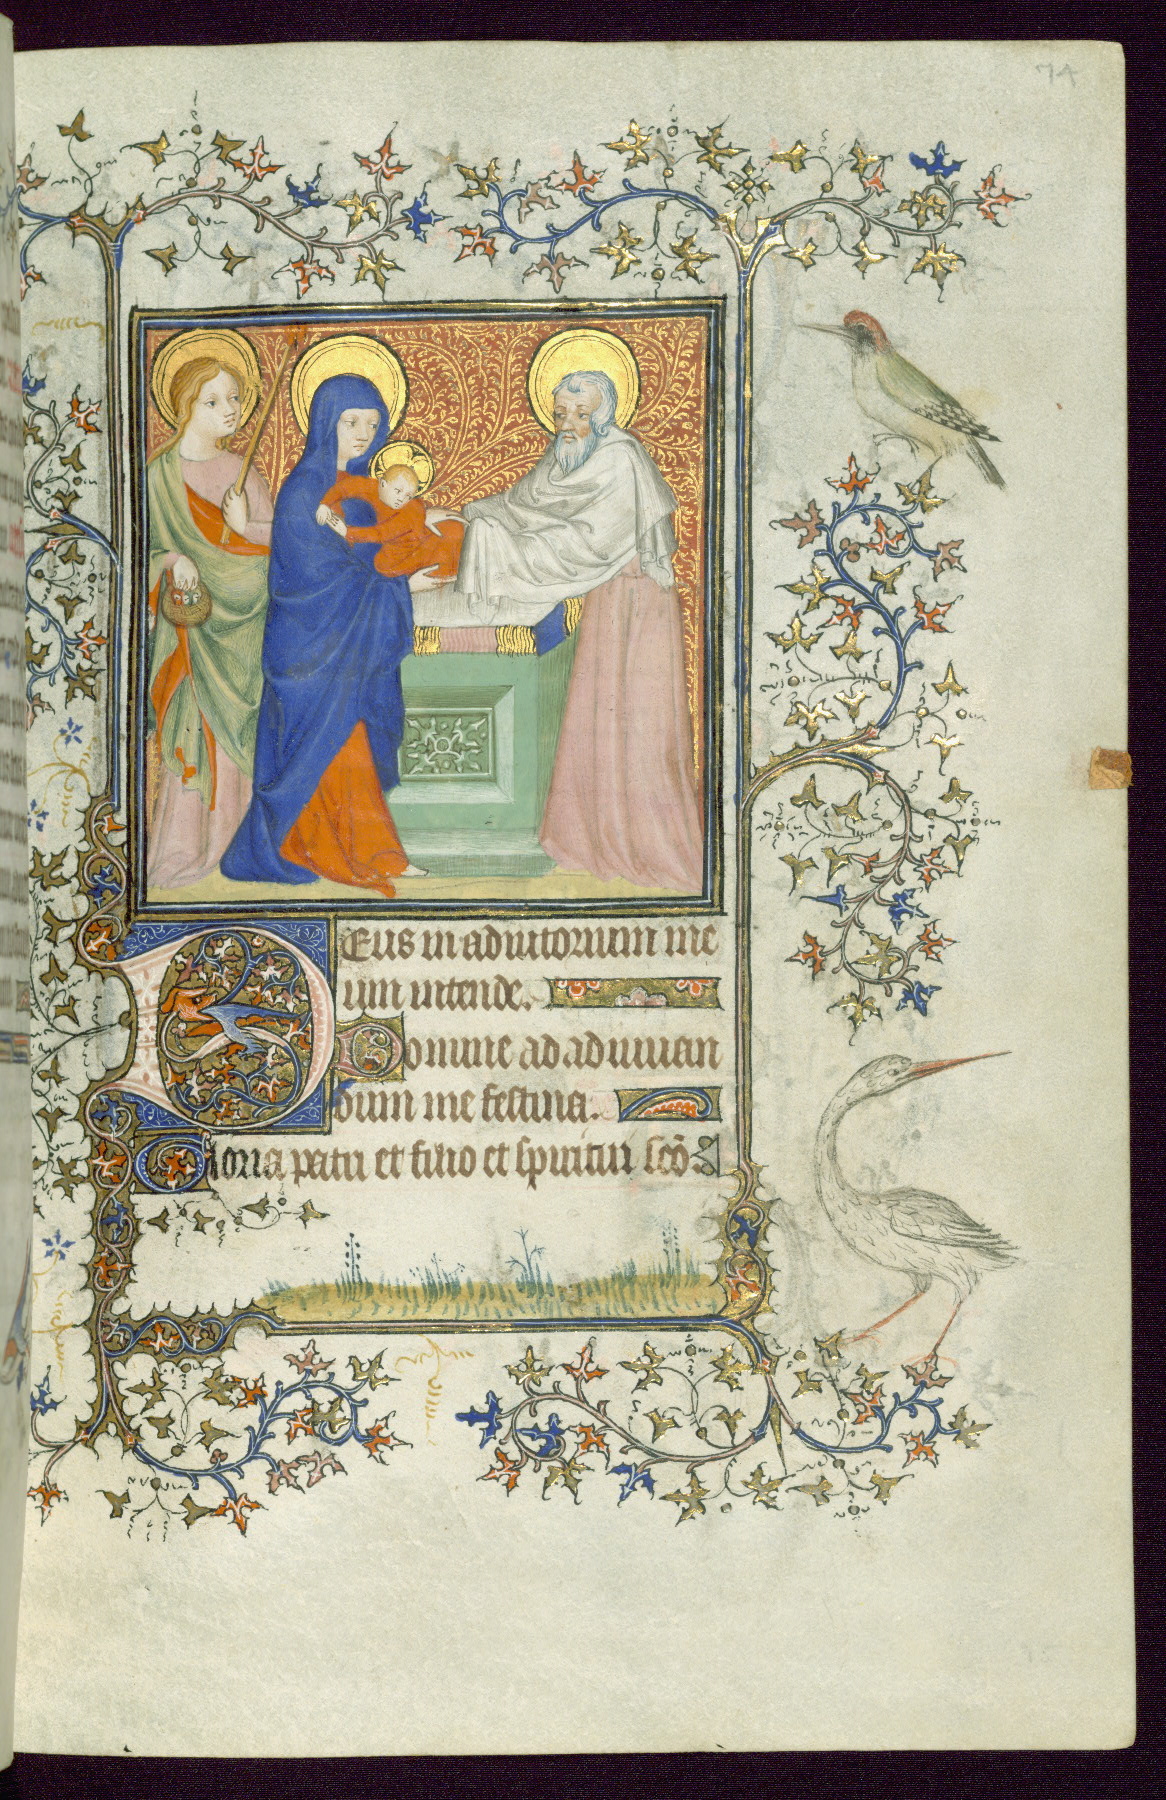 74
Deus in adiutorium me
um intende.
Domine ad adiuuan
dum me festina.
Gloria patri et filio et spiritui sc̃o